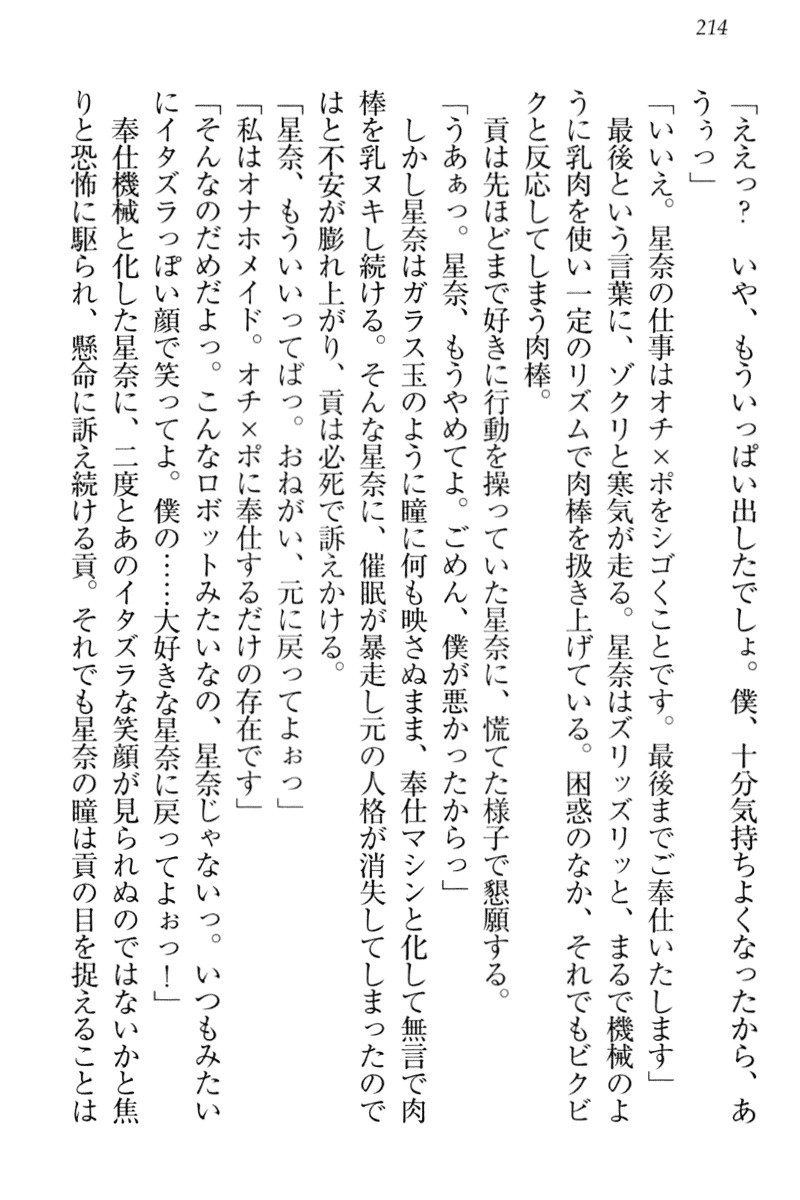 214
「ええっ？　いや、もういっぱい出したでしょ。僕、十分気持ちよくなったから、あ
うぅっ」
「いいえ。星奈の仕事はオチ×ポをシゴくことです。最後までご奉仕いたします」
　最後という言葉に、ゾクリと寒気が走る。星奈はズリッズリッと、まるで機械のよ
うに乳肉を使い一定のリズムで肉棒を扱き上げている。困惑のなか、それでもビクビ
クと反応してしまう肉棒。
　貢は先ほどまで好きに行動を操っていた星奈に、慌てた様子で懇願する。
「うあぁっ。星奈、もうやめてよ。ごめん、僕が悪かったからっ」
　しかし星奈はガラス玉のように瞳に何も映さぬまま、奉仕マシンと化して無言で肉
棒を乳ヌキし続ける。そんな星奈に、催眠が暴走し元の人格が消失してしまったので
はと不安が膨れ上がり、貢は必死で訴えかける。
「星奈、もういいってばっ。おねがい、元に戻ってよぉっ」
「私はオナホメイド。オチ×ポに奉仕するだけの存在です」
「そんなのだめだよっ。こんなロボットみたいなの、星奈じゃないっ。いつもみたい
にイタズラっぽい顔で笑ってよ。僕の……大好きな星奈に戻ってよぉっ！」
　奉仕機械と化した星奈に、二度とあのイタズラな笑顔が見られぬのではないかと焦
りと恐怖に駆られ、懸命に訴え続ける貢。それでも星奈の瞳は貢の目を捉えることは